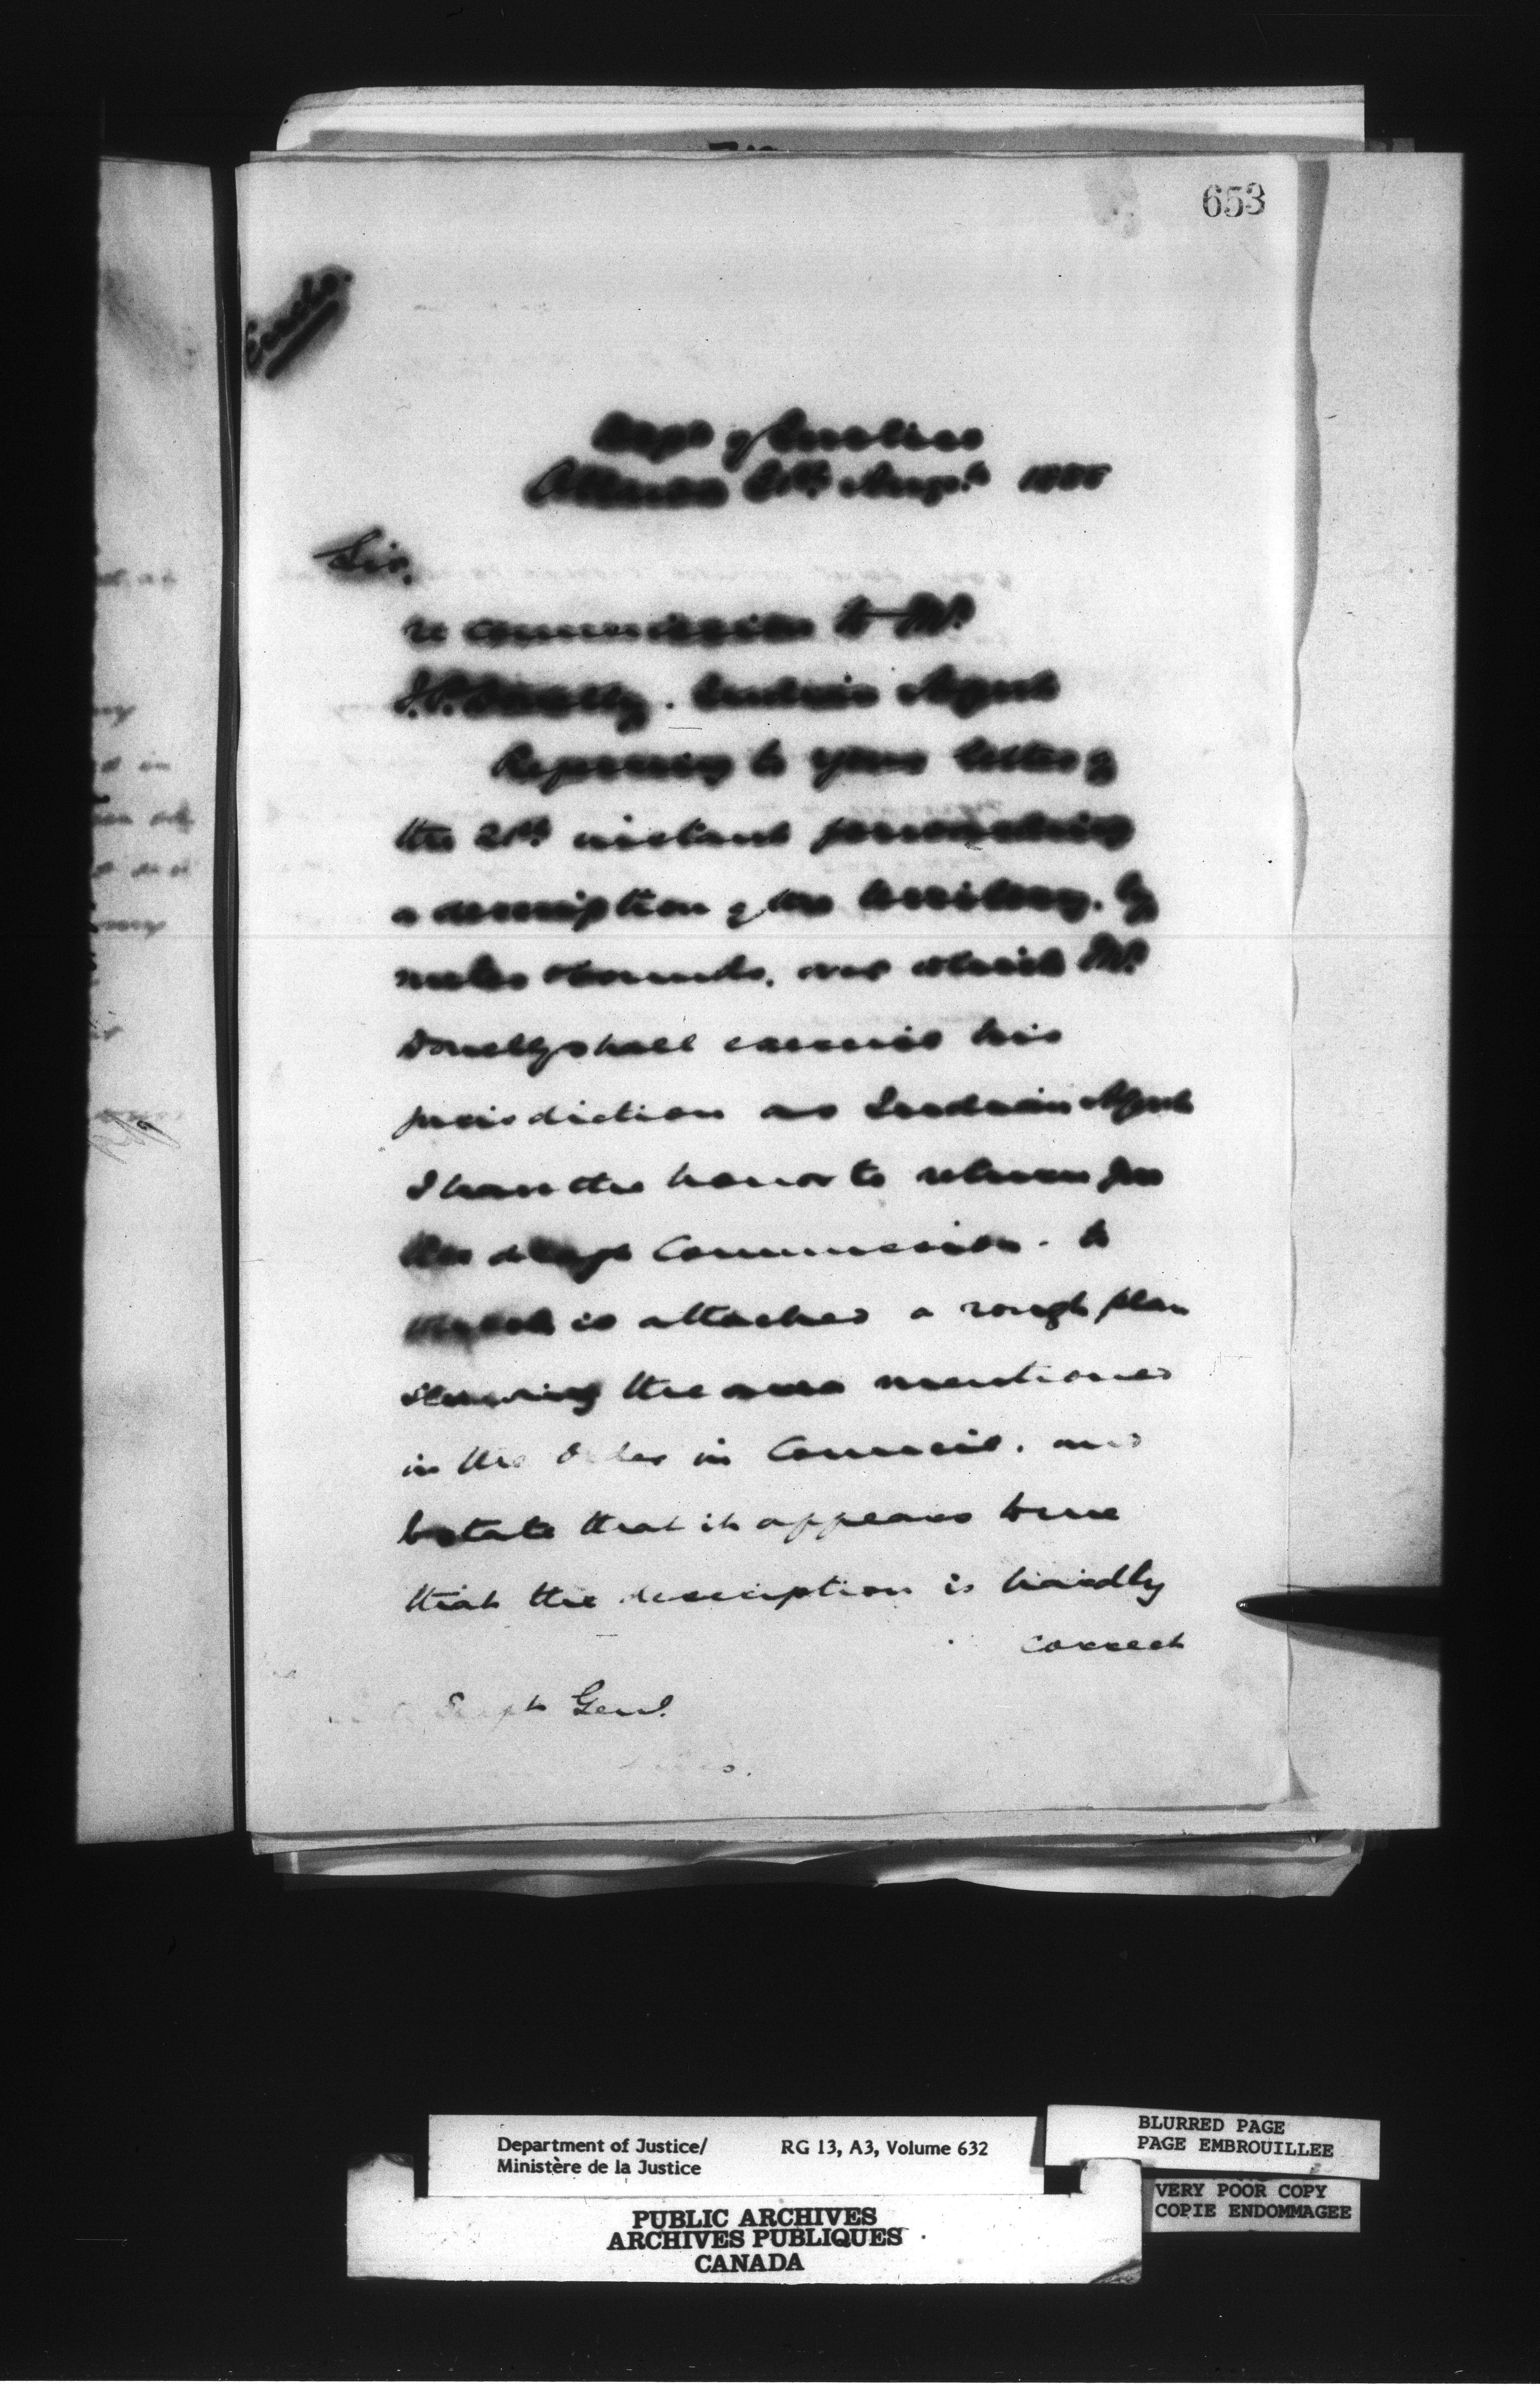 653
Enclo.
Dept of Justice
Ottawa Augt. 1888
Sir,
re commission to Mr.
J.P. Donelly. Indian Agent
Referring to your letter of
the 21st instant forwarding
a description of the territory. by
metes & bounds. over which Mr.
Donelly shall exercise his
jurisdiction as Indian Agent
I have the honor to return you
the draft Commission. to
which is attached a rough plan
shewing the area mentioned
in the Order in Council. and
to state that it appears to me
that the description is hardly
correct
Supt Genl.
Department of Justice/ RG 13, A3, Volume 632
Ministère de la Justice
PUBLIC ARCHIVES
ARCHIVES PUBLIQUES
CANADA
BLURRED PAGE
PAGE EMBROUILLEE
VERY POOR COPY
COPIE ENDOMMAGEE